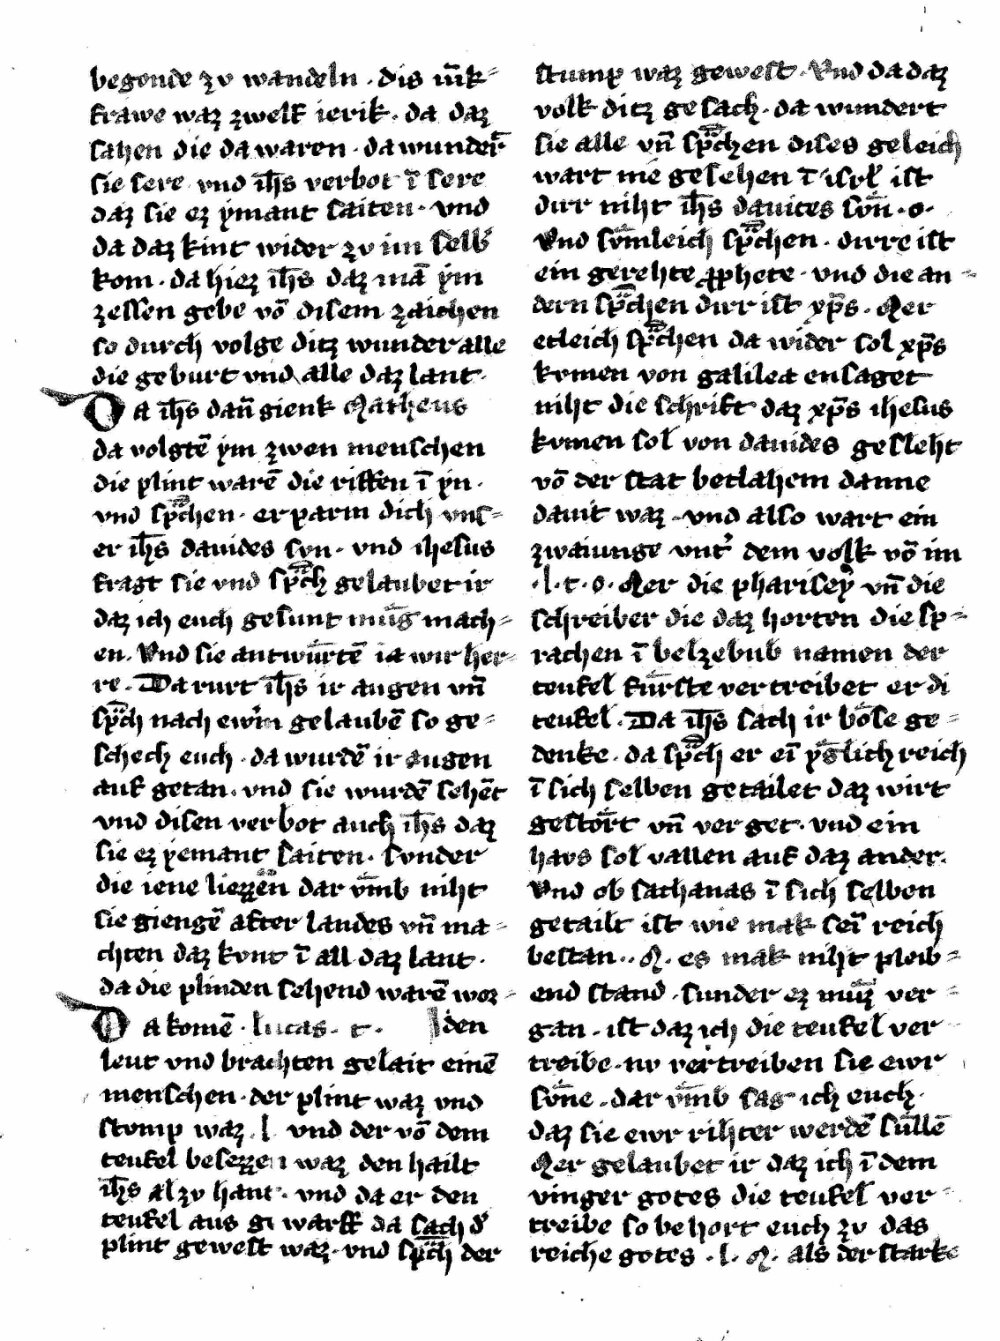 begonde zv wandeln · dis iūk⸗
frawe waz zwelf ierik · da daz
sahen die da waren · da wundert̄
sie sere vnd ih̄s verbot ī sere
daz sie ez ẏmant saiten · vnd
da daz kint wider zv im selb̾
kom · da hiez ih̄s daz mā ẏm
zessen gebe vō disem zaichen
so durch volge ditz wunder alle
die geburt vnd alle daz lant ·
Da ih̄s dañ gienk Matheus
da volgtē ẏm zwen menschen
die plint warē die riffen ī ẏn ·
vnd sp̄chen · er parm dich vns⸗
er ih̄s dauides svn · vnd ihesus
fragt sie vnd sp̄ch gelaubet ir
daz ich euch gesunt mūg mach⸗
en · Vnd sie antwůrtē ia wir her⸗
re · Da rurt ih̄s ir augen vñ
sp̄ch nach ewr̄m gelaubē so ge⸗
schech euch · da wurdē ir augen
auf getan · vnd sie wurdē sehēt
vnd disen verbot auch ih̄s daz
sie ez ẏemant saiten · svnder
die iene liezzen dar vm̄b niht
sie giengē after landes vñ ma⸗
chten daz kvnt ī all daz lant ·
da die plinden sehend warē wor⸗
Da komē · lucas · t · den
leut vnd brachten gelait einē
menschen · der plint waz vnd
stvmp waz · l · vnd der vō dem
teufel besezzen waz den hailt
ih̄s al zv hant · vnd da er den
teufel aus gi warff da sach d̾
plint gewest waz · vnd sp̄ch der
stump waz gewest · Vnd da daz
volk ditz gesach · da wundert
sie alle vñ sp̄chen dises geleich
wart nie gesehen ī isrl̄ ist
dirr niht ih̄s dauites svn · o ·
Vnd svm̄leich sp̄chen · dirre ist
ein gerehte ꝓphete · vnd die an⸗
dern sp̄chen dirr ist xp̄s · Aer
etleich sp̄chen da wider sol xp̄s
kvmen von galilea ensaget
niht die schrift daz xp̄s ihesus
kvmen sol von dauides gesleht
vō der stat betlahem danne
dauit waz · vnd also wart ein
zwaiunge vnt̾ dem volk vō im
· l · t · o · Aer die pharisey vñ die
schreiber die daz horten die sp⸗
rachen ī belzebub namen der
teufel fůrste vertreibet er di
teufel · Da ih̄s sach ir bose ge⸗
denke · da sp̄ch er eī ygslich reich
ī sich selben getailet daz wirt
gestort vñ verget · vnd ein
havs sol vallen auf daz ander ·
Vnd ob sathanas ī sich selben
getailt ist wie mak seī reich
bestan · M · es mak niht pleib⸗
end stand · sunder ez můz ver⸗
gan · ist daz ich die teufel ver
treibe · nv vertreiben sie ewr
svne · dar vm̄b sag ich euch ·
daz sie ewr rihter werdē sůllē
Aer gelaubet ir daz ich ī dem
vinger gotes die teufel ver⸗
treibe so behort euch zv das
reiche gotes · l · M · als der starke